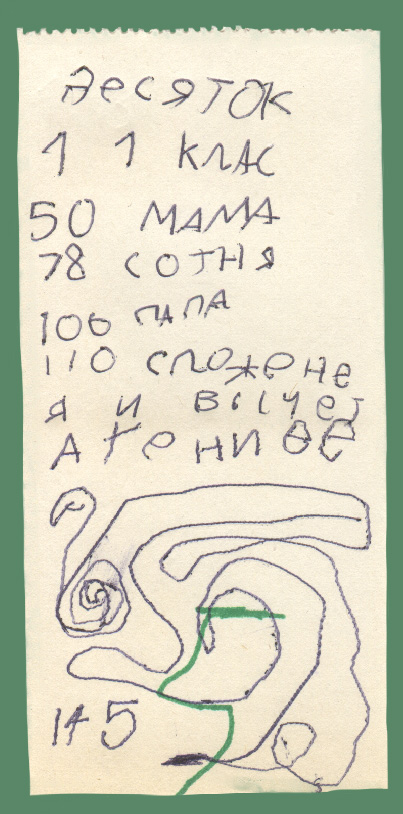 десяток
1 1 клас
50 мама
78 сотня
100 папа
110 сложене
я и высчет
атениее
1+5